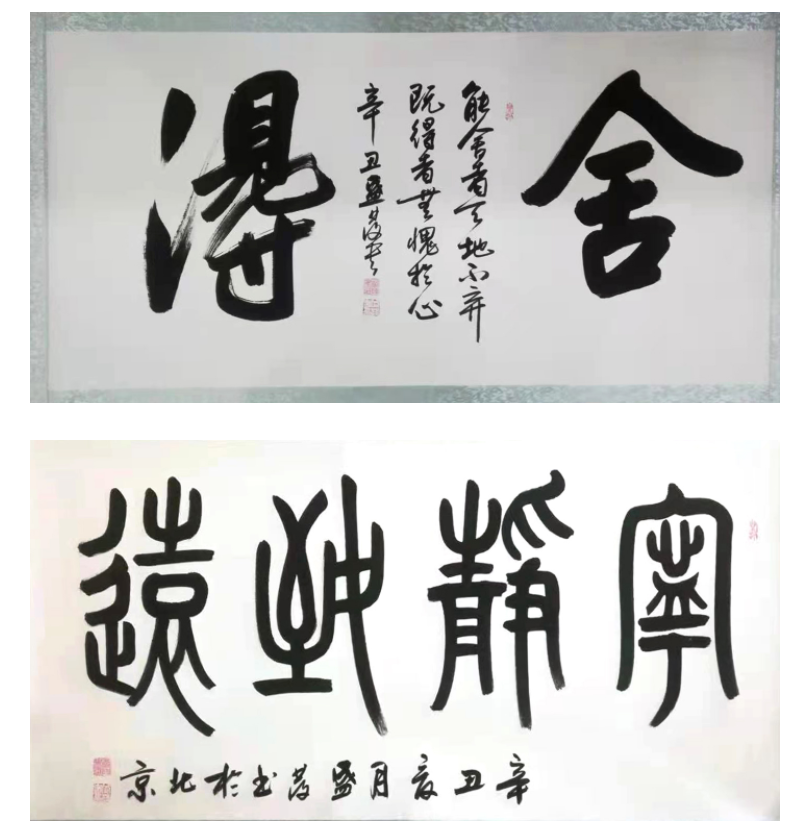 舍
能舍者天地不弃
既得者無愧於心
辛丑盛 书
得
寧靜致遠
辛丑夏月盛 书於北京